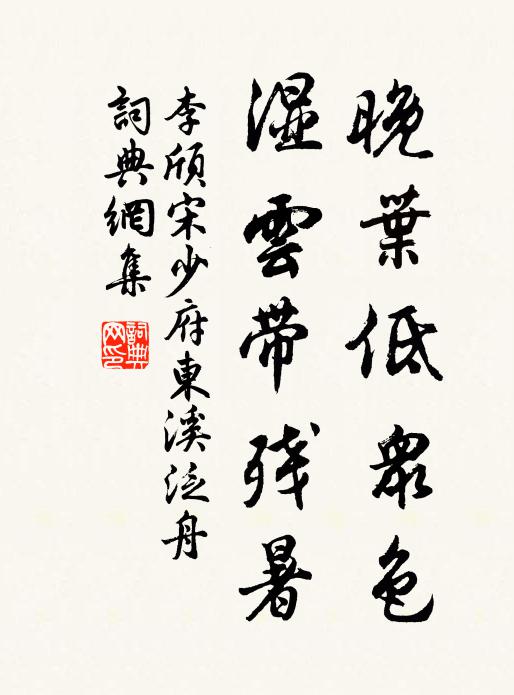 晚葉低衆色
濕雲帶残暑
李頎宋少府東溪泛舟
詞典網集
詞典
网印